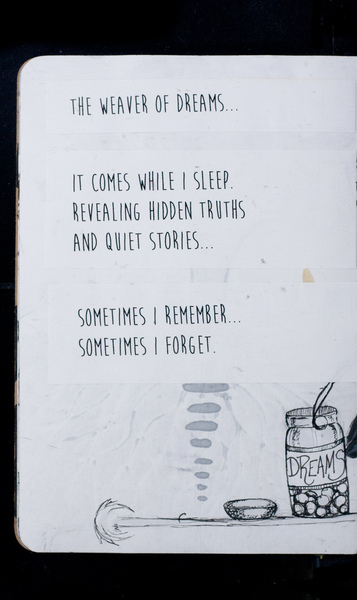 THE WEAVER OF DREAMS...
IT COMES WHILE I SLEEP.
REVEALING HIDDEN TRUTHS
AND QUIET STORIES...
SOMETIMES I REMEMBER...
SOMETIMES I FORGET.
DREAMS